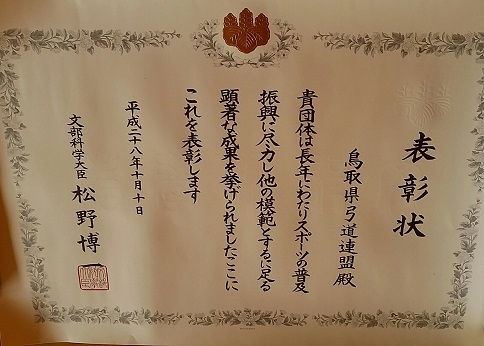 表彰状
鳥取県弓道連盟殿
貴団体は長年にわたりスポーツの普及
振興に尽力し他の模範とするに足る
顕著な成果を挙げられましたここに
これを表彰します
平成二十八年十月十日
文部科学大臣 松野博一